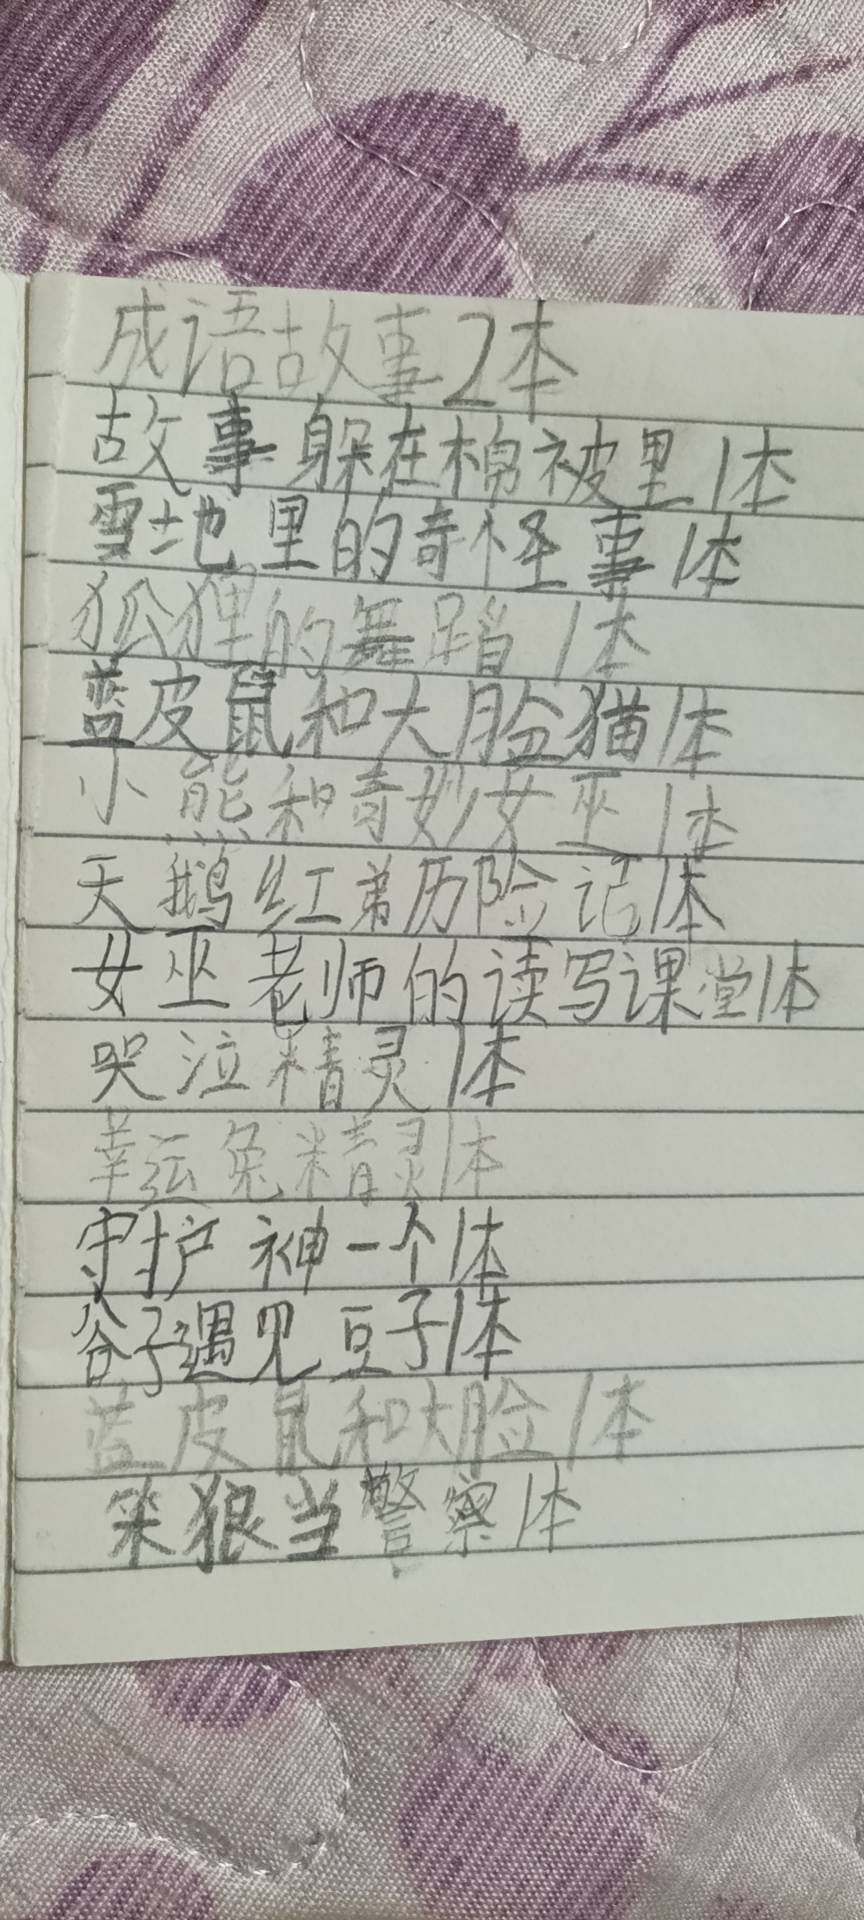 成语故事2本
故事躲在棉被里1本
雪地里的奇怪事1本
狐狸的舞蹈1本
蓝皮鼠和大脸猫1本
小熊和奇妙女巫1本
天鹅红弟历险记1本
女巫老师的读写课堂1本
哭泣精灵1本
幸运兔精灵1本
守护神一个1本
谷子遇见豆子1本
蓝皮鼠和大脸1本
笨狼当警察1本